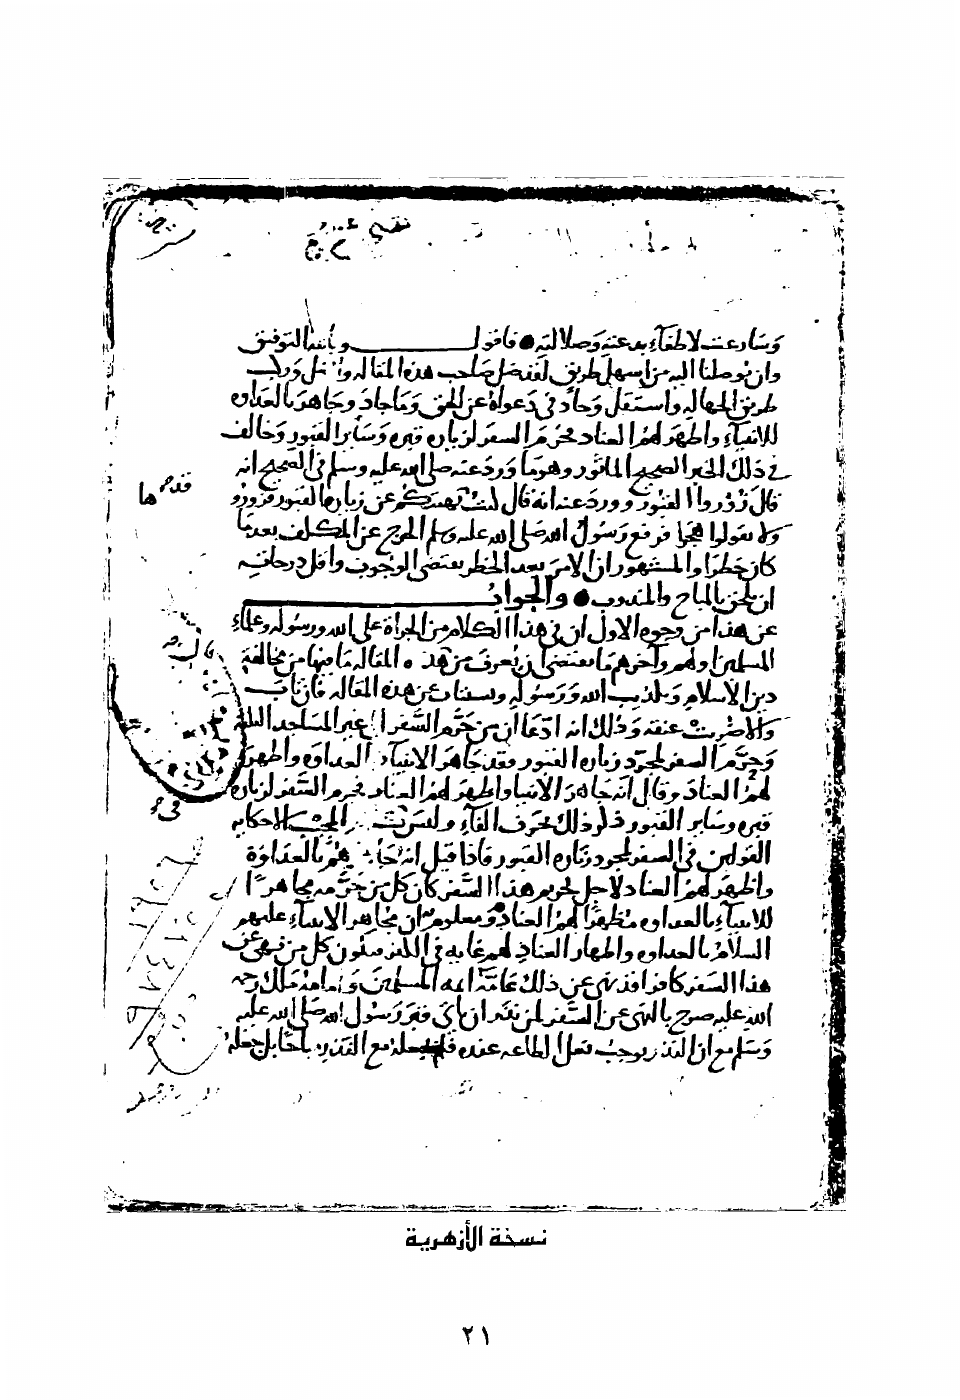 وسارعت لاطفاء بدعته وضلالته فاقول وبالله التوفيق
وان يوصلنا اليه من اسهل طريق لقد ضل صاحب هذه المقاله واضل وركب
طريق الجهاله واستقل وحاد في دعواه عن الحق وما جاد وجاهر بالعداوه
للانبياء واظهر لهم العناد فحرم السفر لزياره قبره وساير القبور وخالف
في ذلك الخبر الصحيح الماثور وهو ما ورد عنه صلى الله عليه وسلم في الصحيح انه
قال زوروا القبور وورد عنه انه قال كنت نهيتكم عن زياره القبور فزورو
ها
ولا تقولوا هجرا فرفع رسول الله صلى الله عليه وسلم الحرج عن المكلف بعدما
كان حظرا والمشهور ان الامر بعد الحظر يقتضي الوجوب واقل درجاته
ان يلحق بالمباح والمندوب والجواب
عن هذا من وجوه الاول ان في هذا الكلام من الجراة على الله ورسوله وعلماء
المسلمين اولهم وآخرهم ما يقتضي ان يعرف من هذه المقاله ما فيها من مخالفة
دين الاسلام وتكذيب الله ورسوله ويستتاب عن هذه المقاله فان تاب
والا ضربت عنقه وذلك انه ادعا ان من حرم السفر الى غير المساجد الثلثة
وحرم السفر لمجرد زياره القبور فقد جاهر الانبياء بالعداوه واظهر
لهم العناد وقال انه جاهر الانبيا واظهر لهم العناد فحرم السفر لزياره
قبره وساير القبور فذكر ذلك بحرف الفاء وليس في المجيب الا حكايه
القولين في السفر لمجرد زياره القبور فاذا قيل انه جاهرهم بالعداوة
واظهر لهم العناد لاجل تحريم هذا السفر كان كل من حرمه مجاهرا
للانبياء بالعداوه مظهرا لهم العناد ومعلوم ان مجاهرة الانبياء عليهم
السلام بالعداوه واظهار العناد لهم غايه في الكفر فيكون كل من نهى عن
هذا السفر كافرا وقد نهى عن ذلك عامة ايمه المسلمين وامامه مالك رحمه
الله عليه صرح بالنهى عن السفر لمن نذر ان ياتي قبر رسول الله صلى الله عليه
وسلم مع ان النذر يوجب فعل الطاعه عنده فلم يجعله مع النذر مباحا بل جعله
نسخة الأزهرية
٢١